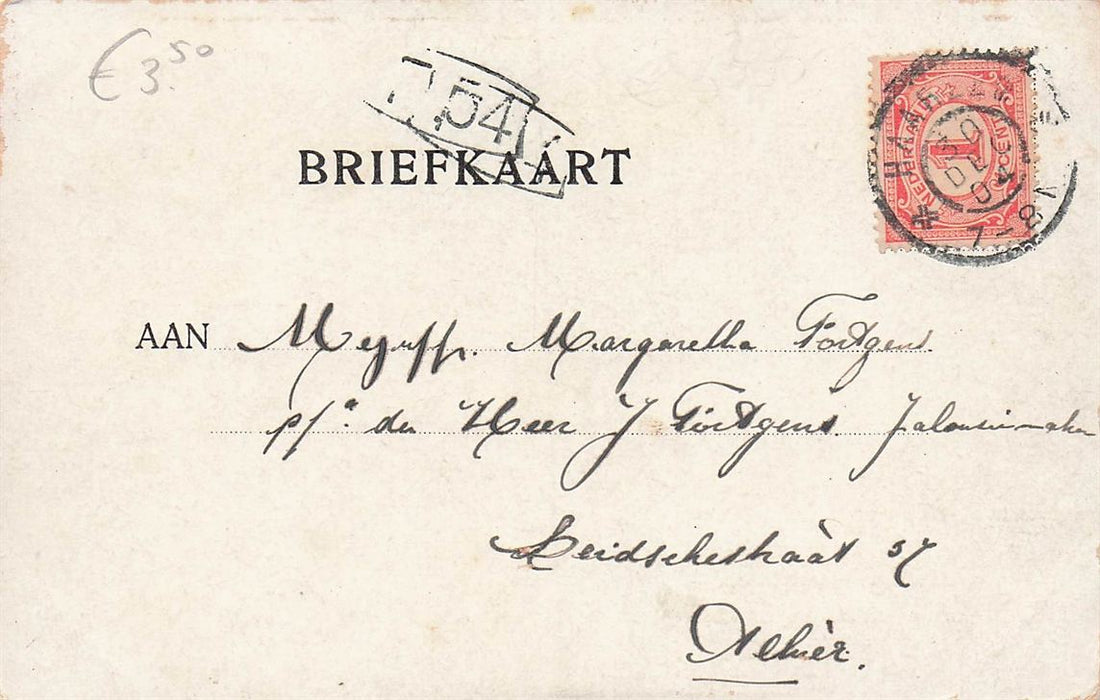 € 3.50
54
BRIEFKAART
NEDERLAND
1
CENT
HAARLEM
30
DEC
04
7-8V
AAN Mejuffr. Margaretha Förtgens
p/a den Heer J Förtgens. Jalousiemaker
Leidschestraàt 57
Alhièr.